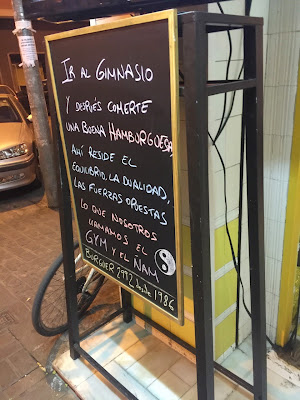 IR AL GIMNASIO
Y DESPUÉS COMERTE
UNA BUENA HAMBURGUESA,
AHÍ RESIDE EL
EQUILIBRIO, LA DUALIDAD,
LAS FUERZAS OPUESTAS
LO QUE NOSOTROS
LLAMAMOS EL
GYM Y EL ÑAM
BURGUER 2992 desde 1986